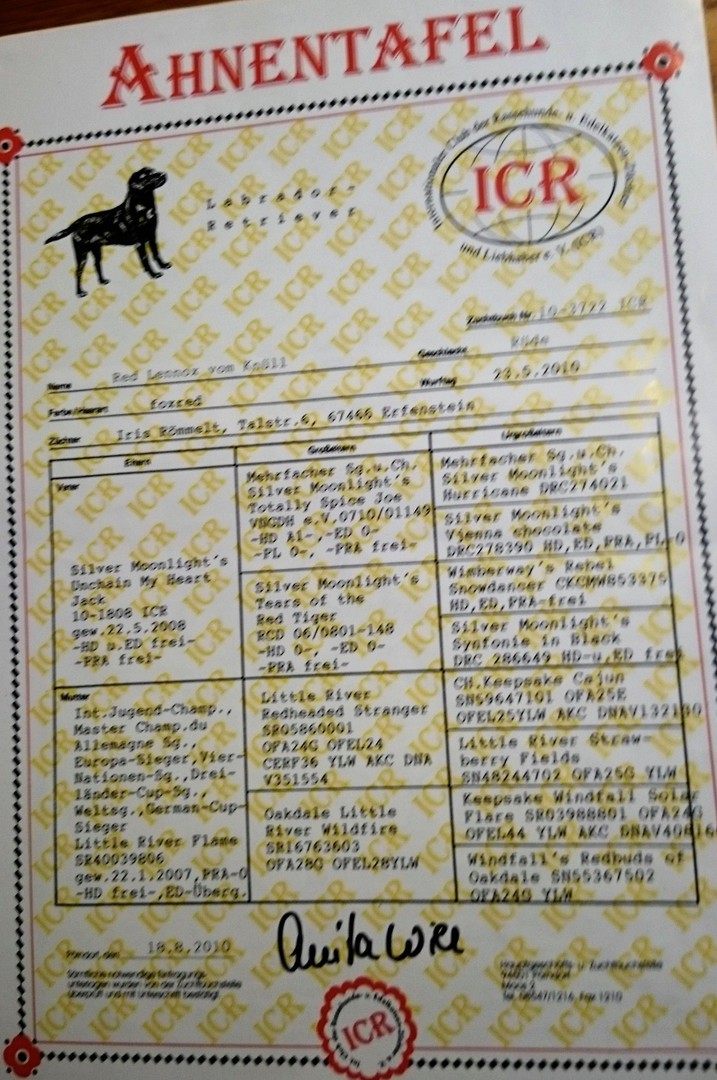 AHNENTAFEL
Internationaler Club der Rassehunde- u. Edelkatzen-Züchter
ICR
und Liebhaber e. V. (ICR)
Labrador-
Retriever
Zuchtbuch Nr. 10-3722 ICR
Name Red Lennox vom Knöll Geschlecht Rüde
Farbe/Haarart foxred Wurftag 23.5.2010
Züchter Iris Römmelt, Talstr.6, 67466 Erfenstein
Eltern Großeltern Urgroßeltern
Vater
Silver Moonlight's
Unchain My Heart
Jack
10-1808 ICR
gew.22.5.2008
-HD u.ED frei-
-PRA frei-
Mehrfacher Sg.u.Ch.
Silver Moonlight's
Totally Spice Joe
VDGDH e.V.0710/01149
-HD A1-,-ED 0-
-PL 0-, -PRA frei-
Silver Moonlight's
Tears of the
Red Tiger
RCD 06/0801-148
-HD 0-, -ED 0-
-PRA frei-
Mehrfacher Sg.u.Ch.
Silver Moonlight's
Hurricane DRC274021
Silver Moonlight's
Vienna chocolate
DRC278390 HD,ED,PRA,PL-0
Wimberway's Rebel
Snowdancer CKCMW853375
HD,ED,PRA-frei
Silver Moonlight's
Synfonie in Black
DRC 286649 HD-u.ED frei
Mutter
Int.Jugend-Champ.,
Master Champ.du
Allemagne Sg.,
Europa-Sieger,Vier-
Nationen-Sg.,Drei-
länder-Cup-Sg.,
Weltsg.,German-Cup-
Sieger
Little River Flame
SR40039806
gew.22.1.2007,PRA-0
-HD frei-,ED-Überg.
Little River
Redheaded Stranger
SR05860001
OFA24G OFEL24
CERF36 YLW AKC DNA
V351554
Oakdale Little
River Wildfire
SR16763603
OFA28G OFEL28YLW
CH.Keepsake Cajun
SN59647101 OFA25E
OFEL25YLW AKC
Little River Straw-
berry Fields
SN48244702 OFA25G YLW
Keepsake Windfall Solar
Flare SR03988801 OFA24G
OFEL44 YLW AKC
Windfall's Redbuds of
Oakdale SN55367502
OFA24G YLW
den 18.8.2010
Anita Wire
Sämtliche notwendige Eintragungs-
unterlagen wurden von der Zuchtbuchstelle
überprüft und mit Unterschrift bestätigt.
Hauptgeschäfts- u. Zuchtbuchstelle
Tel. 08547/1216, Fax 1210
ICR